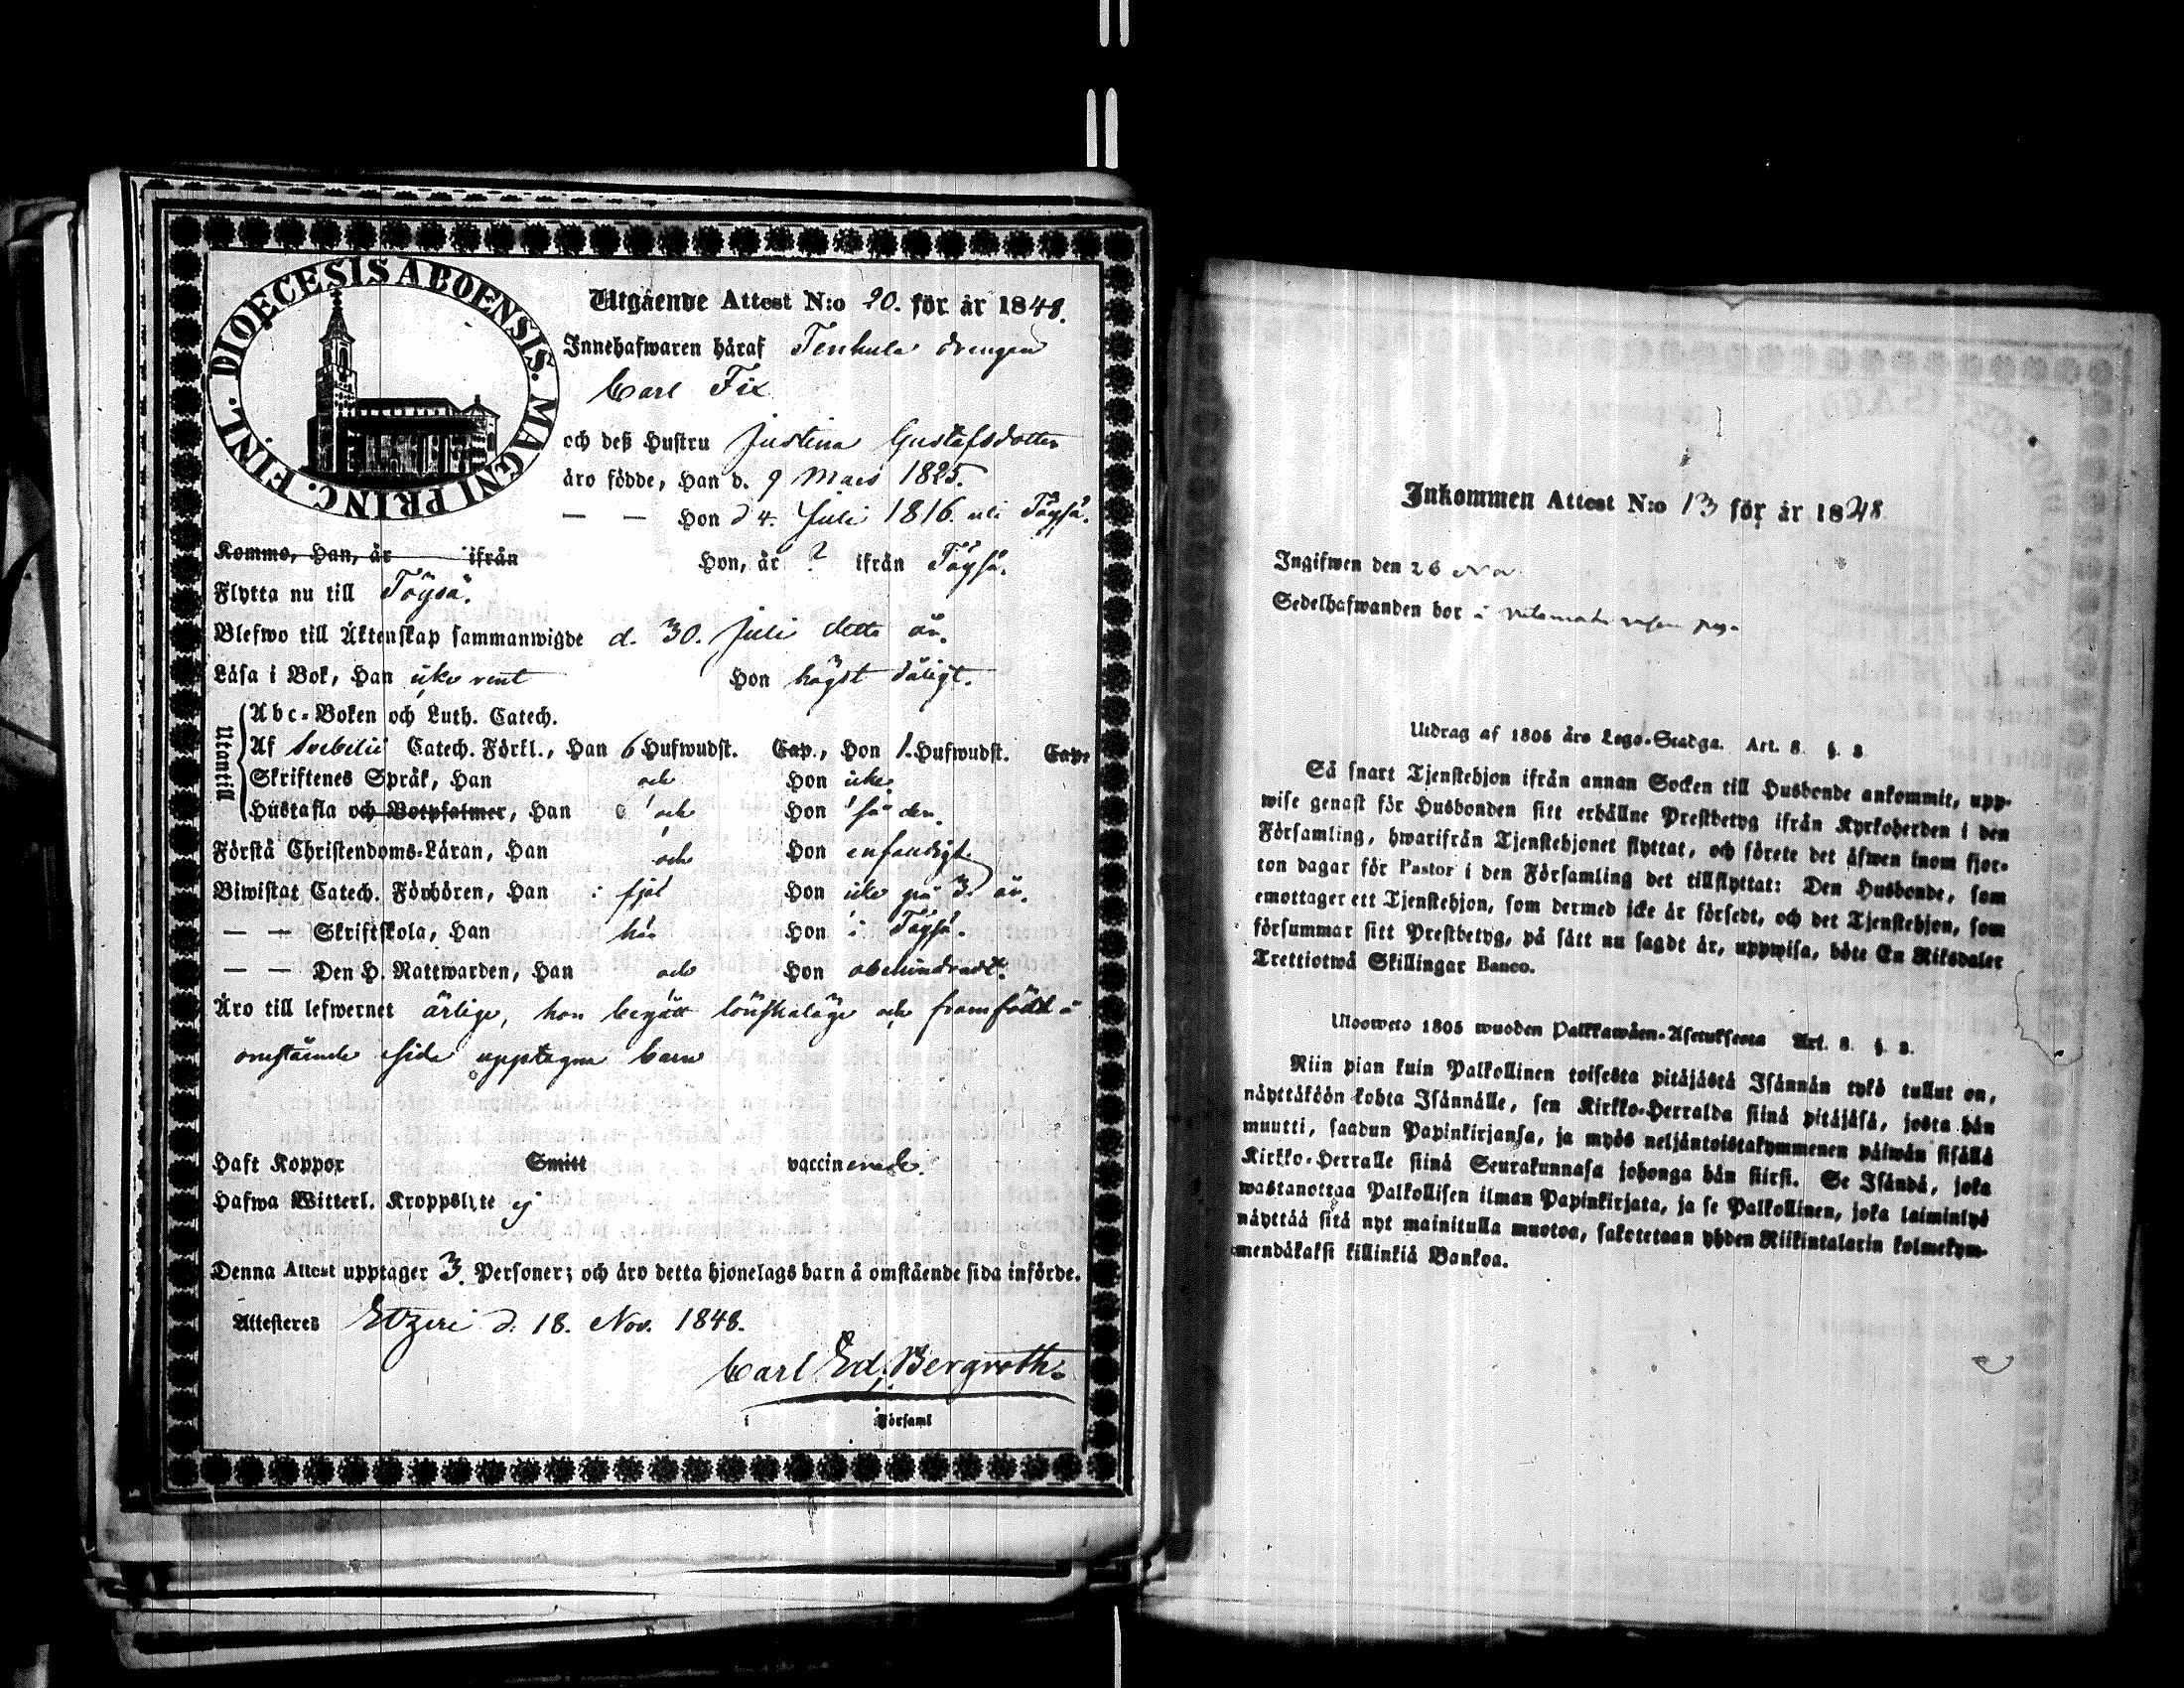 DIOECESIS ABOENSIS. MAGNI PRINC. FINL.
Utgående Attest N:o 20. för år 1848.
Innehafwaren håraf Tenhula drengen
Carl Fix
och deß Hustru Justina Gustafsdotter
åro födde, Han d. 9 Mars 1825.
— — Hon d 4. Juli 1816. uti Töysä.
Kommo, Han, år ifrån Hon, år ? ifrån Töysä.
Flytta nu till Töysä.
Blefwo till Åktenskap sammanwigde d. 30. Juli detta år.
Låsa i Bok, Han icke rent Hon högst dåligt.
Utantill
Abc-Boken och Luth. Catech.
Af Svebelii Catech. Förkl., Han 6 Hufwudst. Cap., Hon 1. Hufwudst. Cap.
Skriftenes Språk, Han och Hon icke.
Hustafla och Botpsalmer, Han och Hon
Förstå Christendoms-Låran, Han och Hon enfaldigt.
Biwistat Catech. Förhören, Han Hon icke på 3 år.
— — Skriftskola, Han här Hon i Töysä.
— — Den H. Nattwarden, Han och Hon obehindradt.
Åro till lefwernet ärlige, hon begått lönskaläge och framfödt å
omstående sida upptagna barn
Haft Koppor Smitt vaccinerade.
Hafwa Witterl. Kroppslyte ej
Denna Attest upptager 3. Personer; och åro detta hjonelags barn å omstående sida införde.
Attesteres Etzeri d. 18. Nov. 1848.
Carl Ed. Bergroth.
i Församl
Inkommen Attest N:o 13 för år 1848
Ingifwen den 26 Nov
Sedelhafwanden bor i
Utdrag af 1805 års Lego-Stadga. Art. 8. §. 8
Så snart Tjenstehjon ifrån annan Socken till Husbonde ankommit, upp-
wise genast för Husbonden sitt erhållne Prestbetyg ifrån Kyrkoherden i den
Församling, hwarifrån Tjenstehjonet flyttat, och förete det åfwen inom fjor-
ton dagar för Pastor i den Församling det tillflyttat: Den Husbonde, som
emottager ett Tjenstehjon, som dermed icke år försedt, och det Tjenstehjon, som
försummar sitt Prestbetyg, på sått nu sagdt år, uppwisa, böte En Riksdaler
Trettiotwå Skillingar Banco.
Ulosweto 1805 wuoden Palkkawåen-Asetuksesta Art. 8. §. 8.
Niin pian kuin Palkollinen toisesta pitåjåstå Isånnån tykö tullut on,
nåyttåköön kohta Isånnålle, sen Kirkko-Herralda siinå pitåjåså, josta hån
muutti, saadun Papinkirjansa, ja myös neljåntoistakymmenen påiwån sisållå
Kirkko-Herralle siinå Seurakunnasa johonga hån siirsi. Se Isåndå, joka
wastanottaa Palkollisen ilman Papinkirjata, ja se Palkollinen, joka laiminlyö
nåyttåå sitå nyt mainitulla muotoa, sakotetaan yhden Riikintalarin kolmekym-
mendåkaksi killinkiå Bankoa.